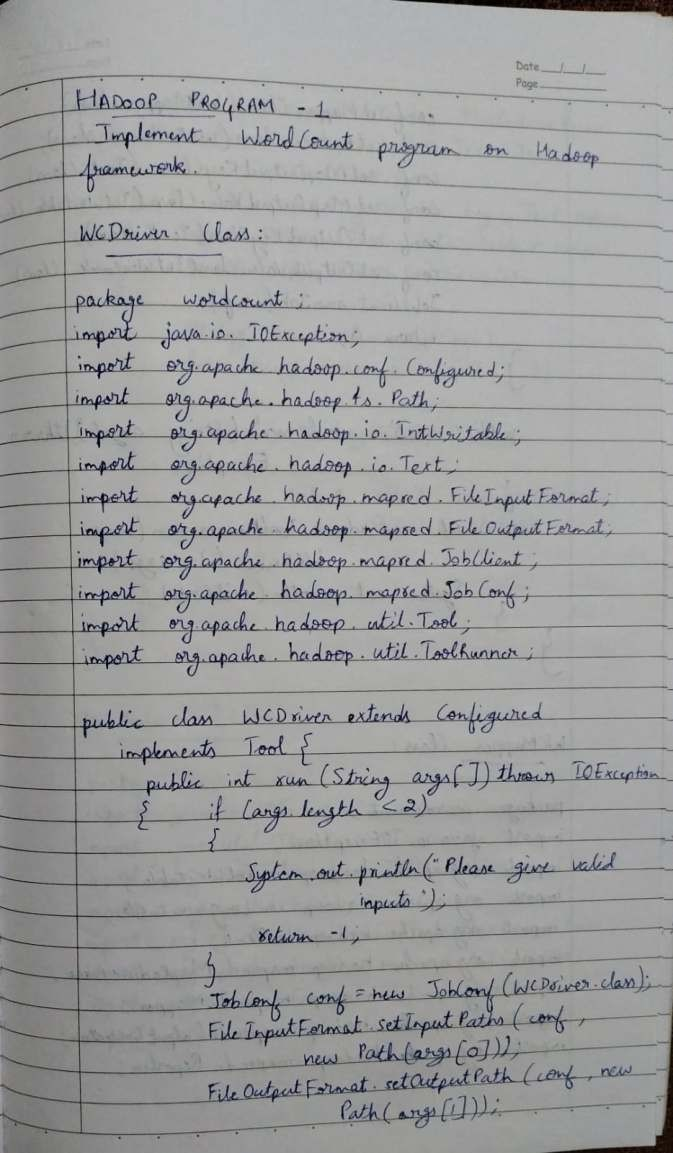 Date __/__/__
Page ________
HADOOP PROGRAM - 1
Implement WordCount program on Hadoop
framework.
WCDriver Class:
package wordcount;
import java.io.IOException;
import org.apache hadoop.conf.Configured;
import org.apache.hadoop.fs.Path;
import org.apache.hadoop.io.IntWritable;
import org.apache.hadoop.io.Text;
import org.apache.hadoop.mapred.FileInputFormat;
import org.apache.hadoop.mapred.FileOutputFormat;
import org.apache.hadoop.mapred.JobClient;
import org.apache.hadoop.mapred.JobConf;
import org.apache.hadoop.util.Tool;
import org.apache.hadoop.util.ToolRunner;
public class WCDriver extends Configured
implements Tool {
public int run (String args[]) throws IOException
{ if (args.length < 2)
{
System.out.println("Please give valid
inputs");
return -1;
}
JobConf conf = new JobConf(WCDriver.class);
FileInputFormat.setInputPaths(conf,
new Path(args[0]));
FileOutputFormat.setOutputPath(conf, new
Path(args[1]));